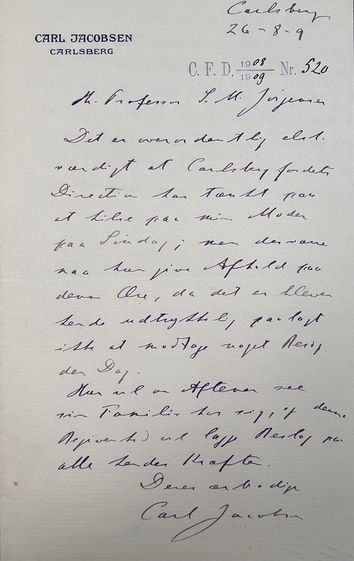 Carlsberg
26-8-9
CARL JACOBSEN
CARLSBERG
C. F. D. 1908/1909 Nr. 520
Hr. Professor S. M. Jørgensen
Det er overordentlig elsk-
værdigt at Carlsbergfondets
Direction har tænkt paa
at hilse paa min Moder
paa Søndag; men desværre
maa hun give Afkald paa
denne Ære, da det er blevet
hende udtrykkelig paalagt
ikke at modtage noget Besøg
den Dag.
Hun vil om Aftenen see
sin Familie hos sig, og denne
Begivenhed vil lægge Beslag paa
alle hendes Kræfter.
Deres ærbødige
Carl Jacobsen